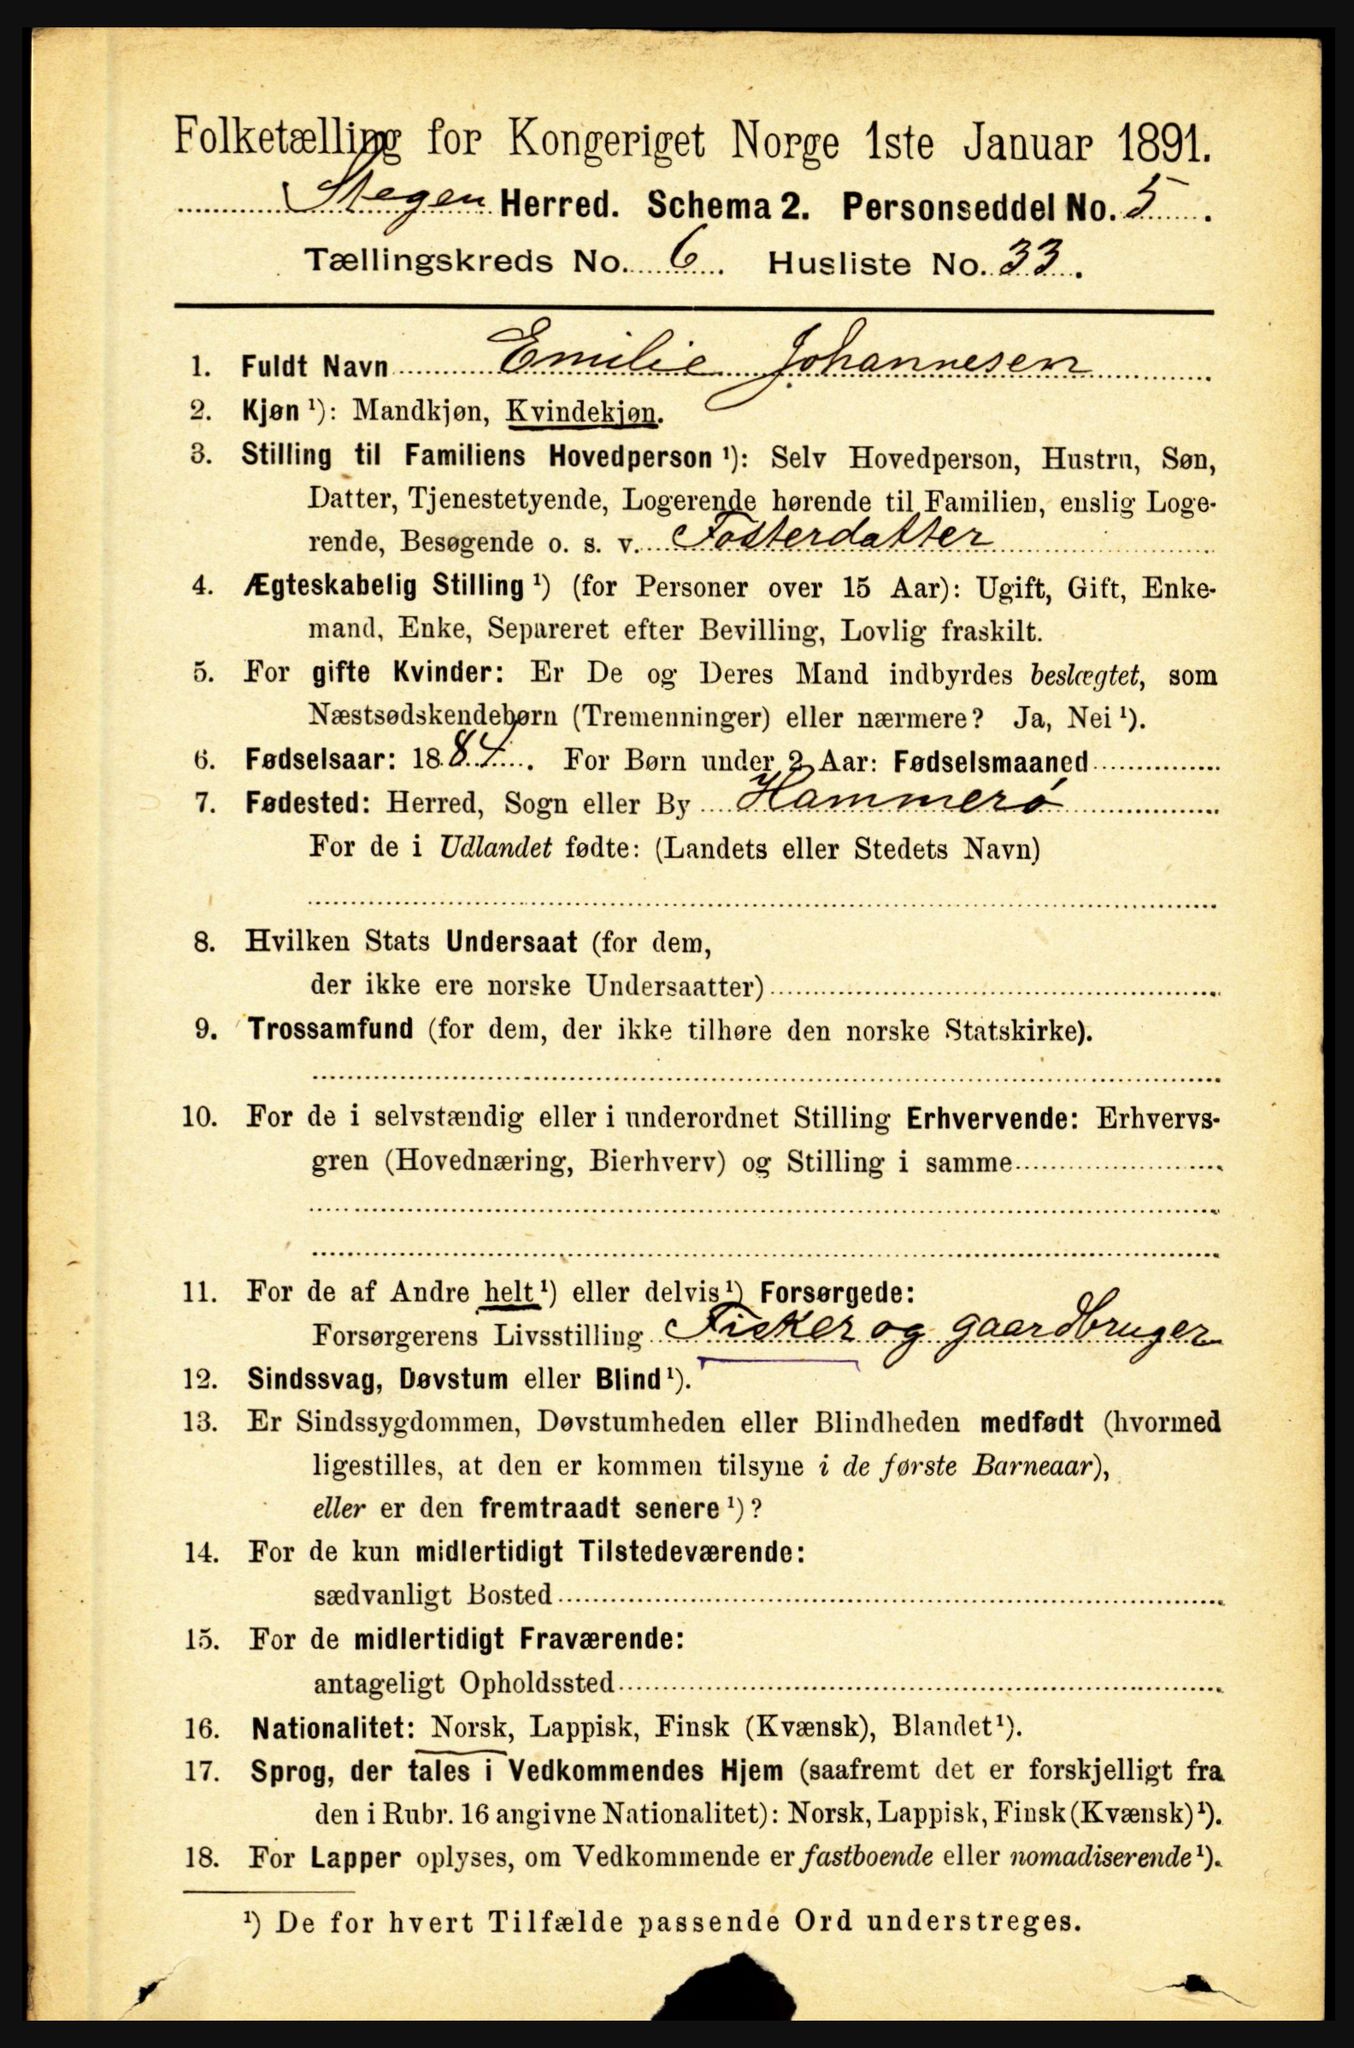 Folketælling for Kongeriget Norge 1ste Januar 1891.
Stegen Herred. Schema 2. Personseddel No. 5.
Tællingskreds No. 6. Husliste No. 33.
1. Fuldt Navn Emilie Johannesen
2. Kjøn ¹): Mandkjøn, Kvindekjøn.
3. Stilling til Familiens Hovedperson ¹): Selv Hovedperson, Hustru, Søn,
Datter, Tjenestetyende, Logerende hørende til Familien, enslig Loge-
rende, Besøgende o. s. v. Fosterdatter
4. Ægteskabelig Stilling ¹) (for Personer over 15 Aar): Ugift, Gift, Enke-
mand, Enke, Separeret efter Bevilling, Lovlig fraskilt.
5. For gifte Kvinder: Er De og Deres Mand indbyrdes beslægtet, som
Næstsødskendebørn (Tremenninger) eller nærmere? Ja, Nei ¹).
6. Fødselsaar: 1884. For Børn under 2 Aar: Fødselsmaaned
7. Fødested: Herred, Sogn eller By Hammerø
For de i Udlandet fødte: (Landets eller Stedets Navn)
8. Hvilken Stats Undersaat (for dem,
der ikke ere norske Undersaatter)
9. Trossamfund (for dem, der ikke tilhøre den norske Statskirke).
10. For de i selvstændig eller i underordnet Stilling Erhvervende: Erhvervs-
gren (Hovednæring, Bierhverv) og Stilling i samme
11. For de af Andre helt ¹) eller delvis ¹) Forsørgede:
Forsørgerens Livsstilling Fisker og gaardbruger
12. Sindssvag, Døvstum eller Blind ¹).
13. Er Sindssygdommen, Døvstumheden eller Blindheden medfødt (hvormed
ligestilles, at den er kommen tilsyne i de første Barneaar),
eller er den fremtraadt senere ¹)?
14. For de kun midlertidigt Tilstedeværende:
sædvanligt Bosted
15. For de midlertidigt Fraværende:
antageligt Opholdssted
16. Nationalitet: Norsk, Lappisk, Finsk (Kvænsk), Blandet ¹).
17. Sprog, der tales i Vedkommendes Hjem (saafremt det er forskjelligt fra
den i Rubr. 16 angivne Nationalitet): Norsk, Lappisk, Finsk (Kvænsk) ¹).
18. For Lapper oplyses, om Vedkommende er fastboende eller nomadiserende ¹).
¹) De for hvert Tilfælde passende Ord understreges.